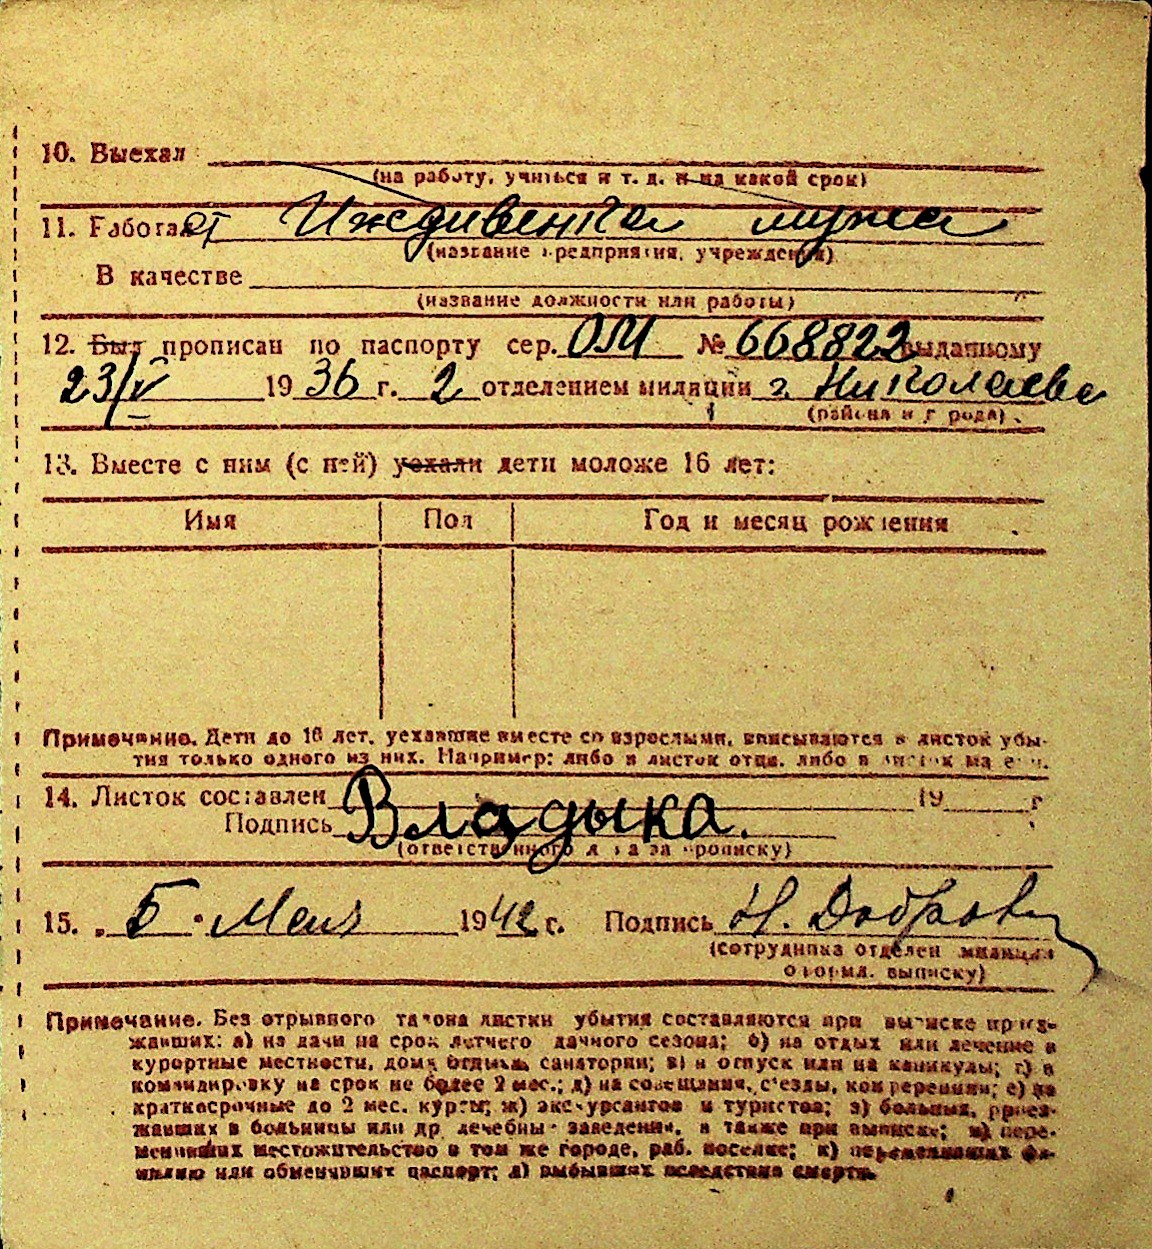 10. Выехал
(на работу, учиться и т. д. и на какой срок)
11. Работает Иждивенка мужа
(название предприятия, учреждения)
В качестве
(название должности или работы)
12. Был прописан по паспорту сер. ОМ № 668822 выданному
23/V 1936 г. 2 отделением милиции г. Николаева
(района и города)
13. Вместе с ним (с ней) уехали дети моложе 16 лет:
Имя Пол Год и месяц рождения
Примечание. Дети до 16 лет, уехавшие вместе со взрослыми, вписываются в листок убы-
тия только одного из них. Например: либо в листок отца, либо в листок матери.
14. Листок составлен 19 г
Подпись Владыка.
(ответственного за прописку)
15. „5" Мая 1942 г. Подпись Н. Добров
(сотрудника отделен. милиции
оформл. выписку)
Примечание. Без отрывного талона листки убытия составляются при выписке приез-
жавших: а) на дачи на срок летнего дачного сезона; б) на отдых или лечение в
курортные местности, дома отдыха, санатории; в) в отпуск или на каникулы; г) в
командировку на срок не более 2 мес.; д) на совещания, съезды, конференции; е) на
краткосрочные до 2 мес. курсы; ж) экскурсантов и туристов; з) больных, приез-
жавших в больницы или др лечебные заведения, а также при выписке; и) пере-
менивших местожительство в том же городе, раб. поселке; к) переменивших фа-
милию или обменявших паспорт; л) выбывших вследствие смерти.